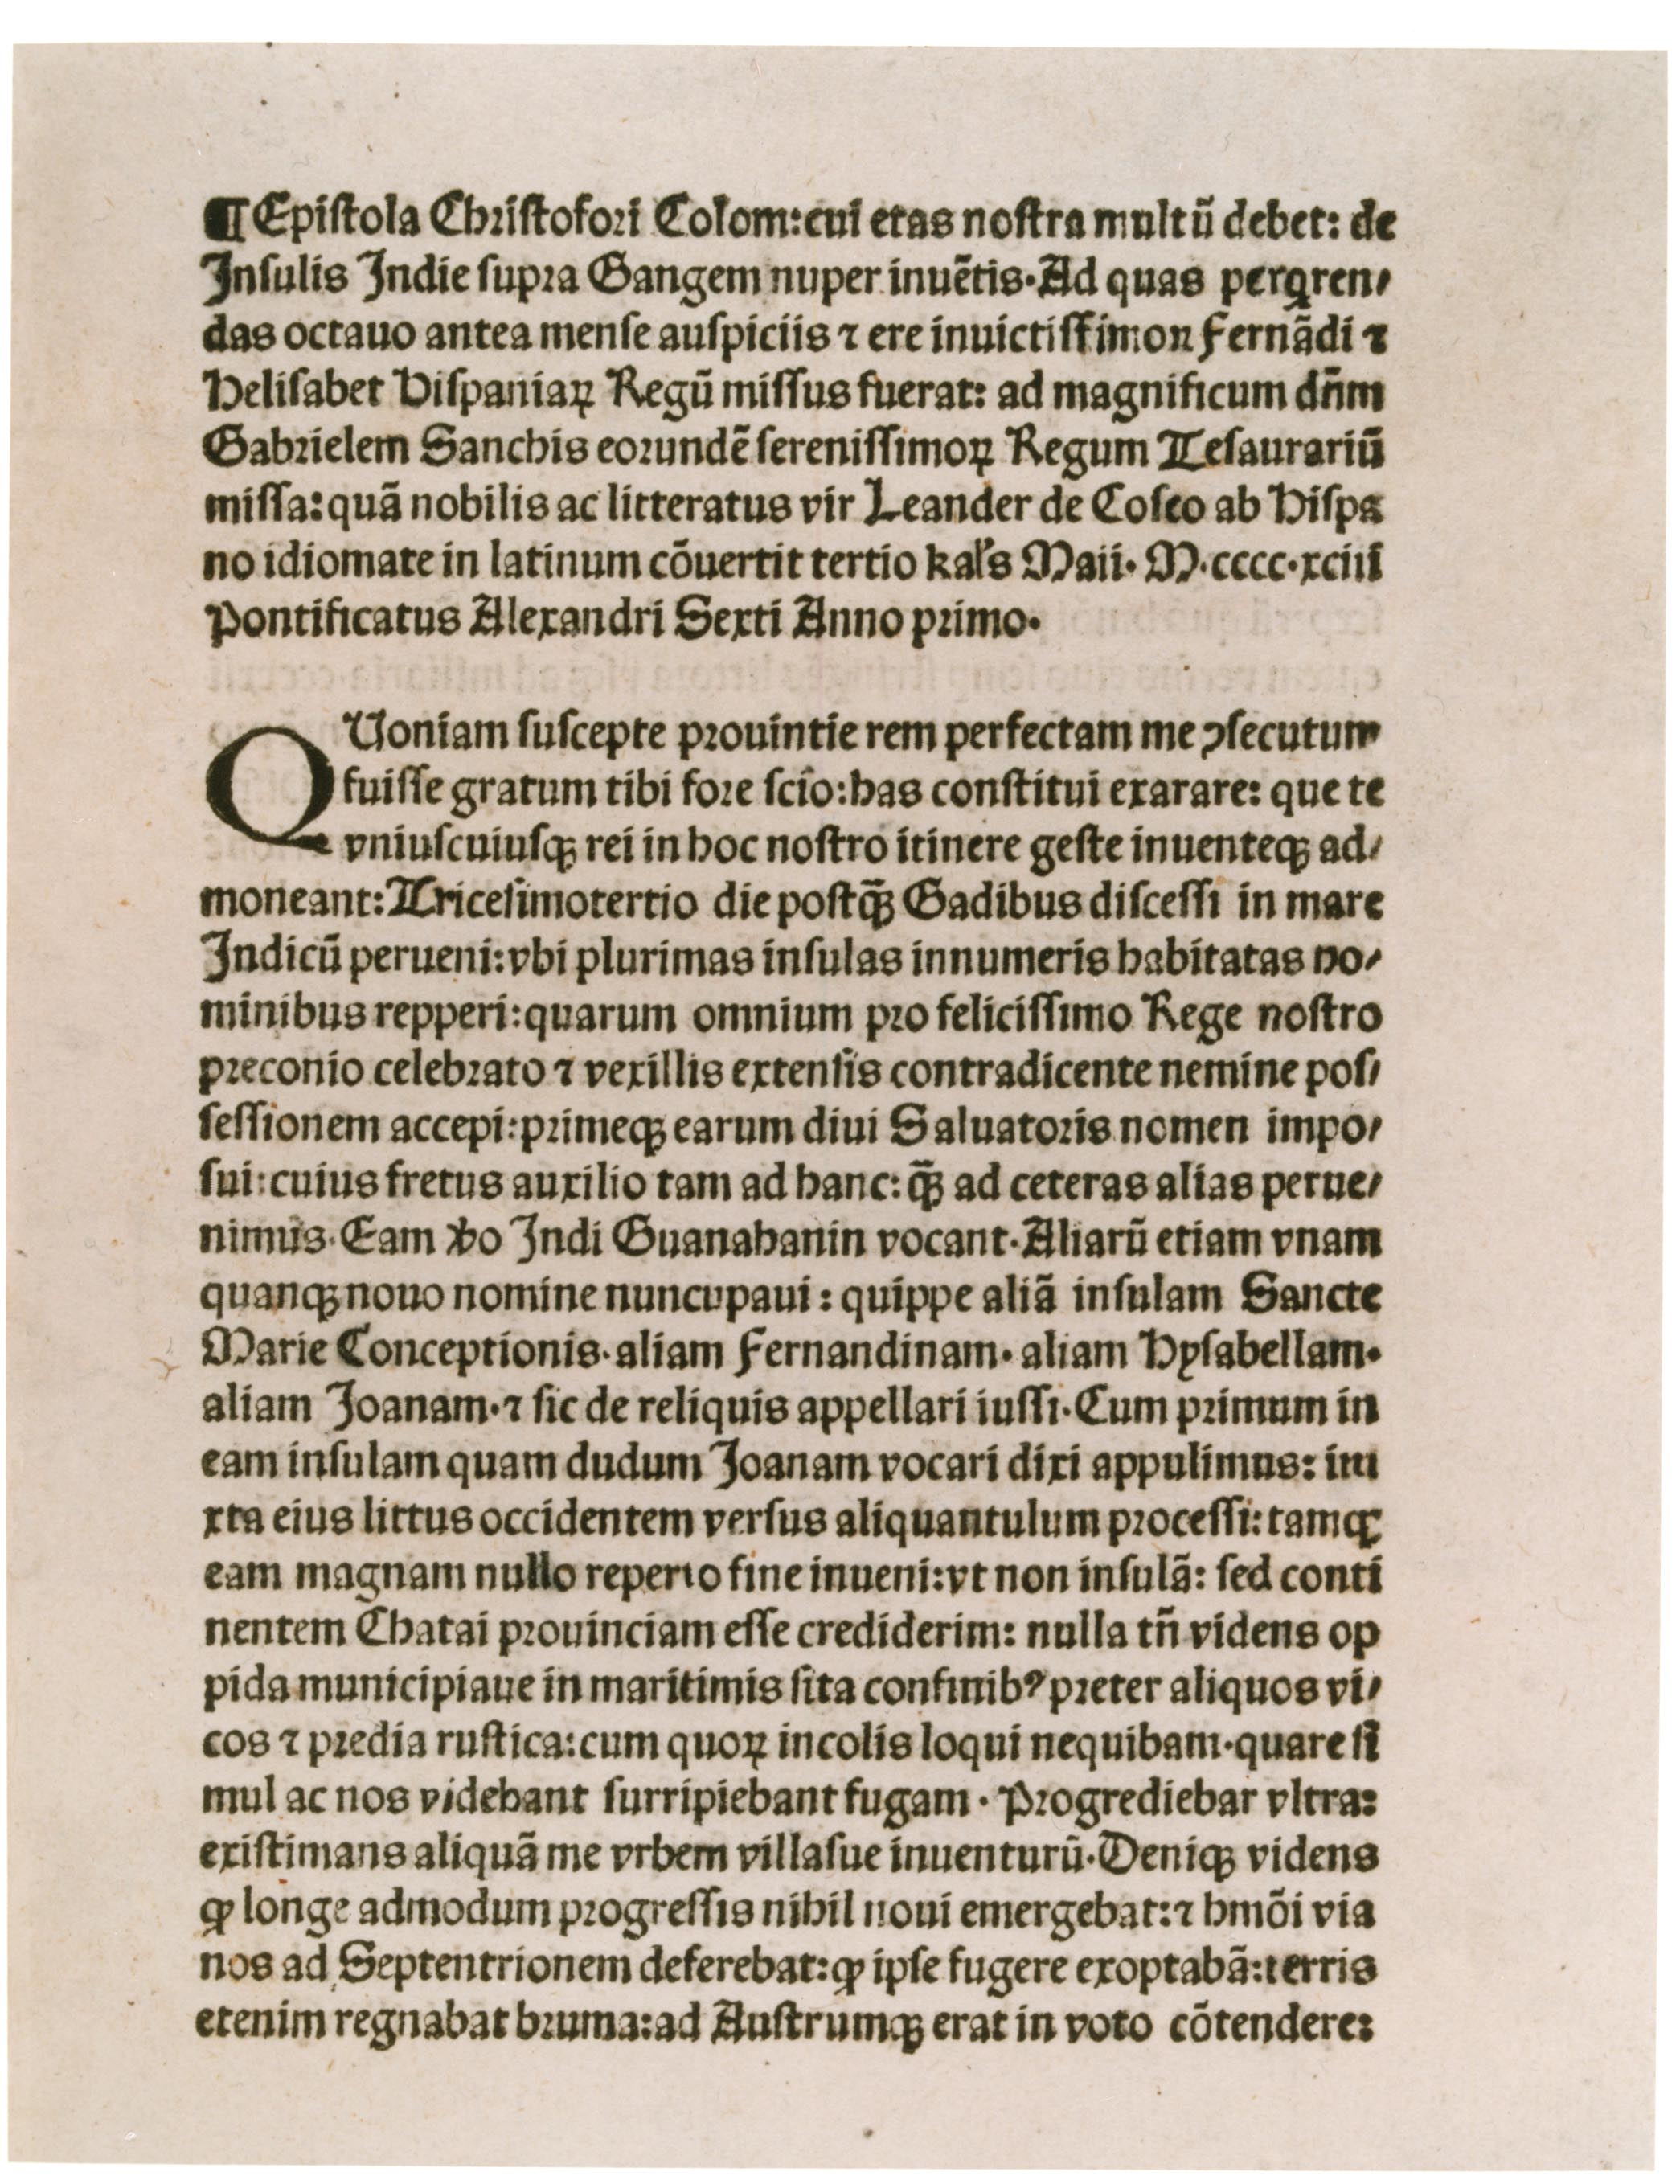 ¶ Epiſtola Chriſtofori Colom: cui etas noſtra multũ debet: de
Inſulis Indie ſupra Gangem nuper inuẽtis. Ad quas perqren⸗
das octauo antea menſe auſpiciis ⁊ ere inuictiſſimoꝝ Fernãdi ⁊
Heliſabet Hiſpaniaꝝ Regũ miſſus fuerat: ad magnificum dñm
Gabrielem Sanchis eorundẽ ſereniſſimoꝝ Regum Teſaurariũ
miſſa: quã nobilis ac litteratus vir Leander de Coſco ab Hiſpa
no idiomate in latinum cõuertit tertio kal's Maii. M.cccc.xciii
Pontificatus Alexandri Sexti Anno primo.
QUoniam ſuſcepte prouintie rem perfectam me ꝯſecutum
fuiſſe gratum tibi fore ſcio: has conſtitui exarare: que te
vniuſcuiuſqꝫ rei in hoc noſtro itinere geſte inuenteqꝫ ad⸗
moneant: Triceſimotertio die poſtq̃ꝫ Gadibus diſceſſi in mare
Indicũ perueni: vbi plurimas inſulas innumeris habitatas ho⸗
minibus repperi: quarum omnium pro feliciſſimo Rege noſtro
preconio celebrato ⁊ vexillis extenſis contradicente nemine poſ⸗
ſeſſionem accepi: primeqꝫ earum diui Saluatoris nomen impo⸗
ſui: cuius fretus auxilio tam ad hanc: q̃ꝫ ad ceteras alias perue⸗
nimus. Eam ꝟo Indi Guanahanin vocant. Aliarũ etiam vnam
quanqꝫ nouo nomine nuncupaui: quippe aliã inſulam Sancte
Marie Conceptionis. aliam Fernandinam. aliam Hyſabellam.
aliam Joanam. ⁊ ſic de reliquis appellari iuſſi. Cum primum in
eam inſulam quam dudum Joanam vocari dixi appulimus: iu
xta eius littus occidentem verſus aliquantulum proceſſi: tamqꝫ
eam magnam nullo reperto fine inueni: vt non inſulã: ſed conti
nentem Chatai prouinciam eſſe crediderim: nulla tñ videns op
pida municipiaue in maritimis ſita confinibꝰ preter aliquos vi⸗
cos ⁊ predia ruſtica: cum quoꝝ incolis loqui nequibam. quare ſi
mul ac nos videbant ſurripiebant fugam. Progrediebar vltra:
exiſtimans aliquã me vrbem villaſue inuenturũ. Deniqꝫ videns
ꝙ longe admodum progreſſis nihil noui emergebat: ⁊ hmõi via
nos ad Septentrionem deferebat: ꝙ ipſe fugere exoptabã: terris
etenim regnabat bruma: ad Auſtrumqꝫ erat in voto cõtendere: